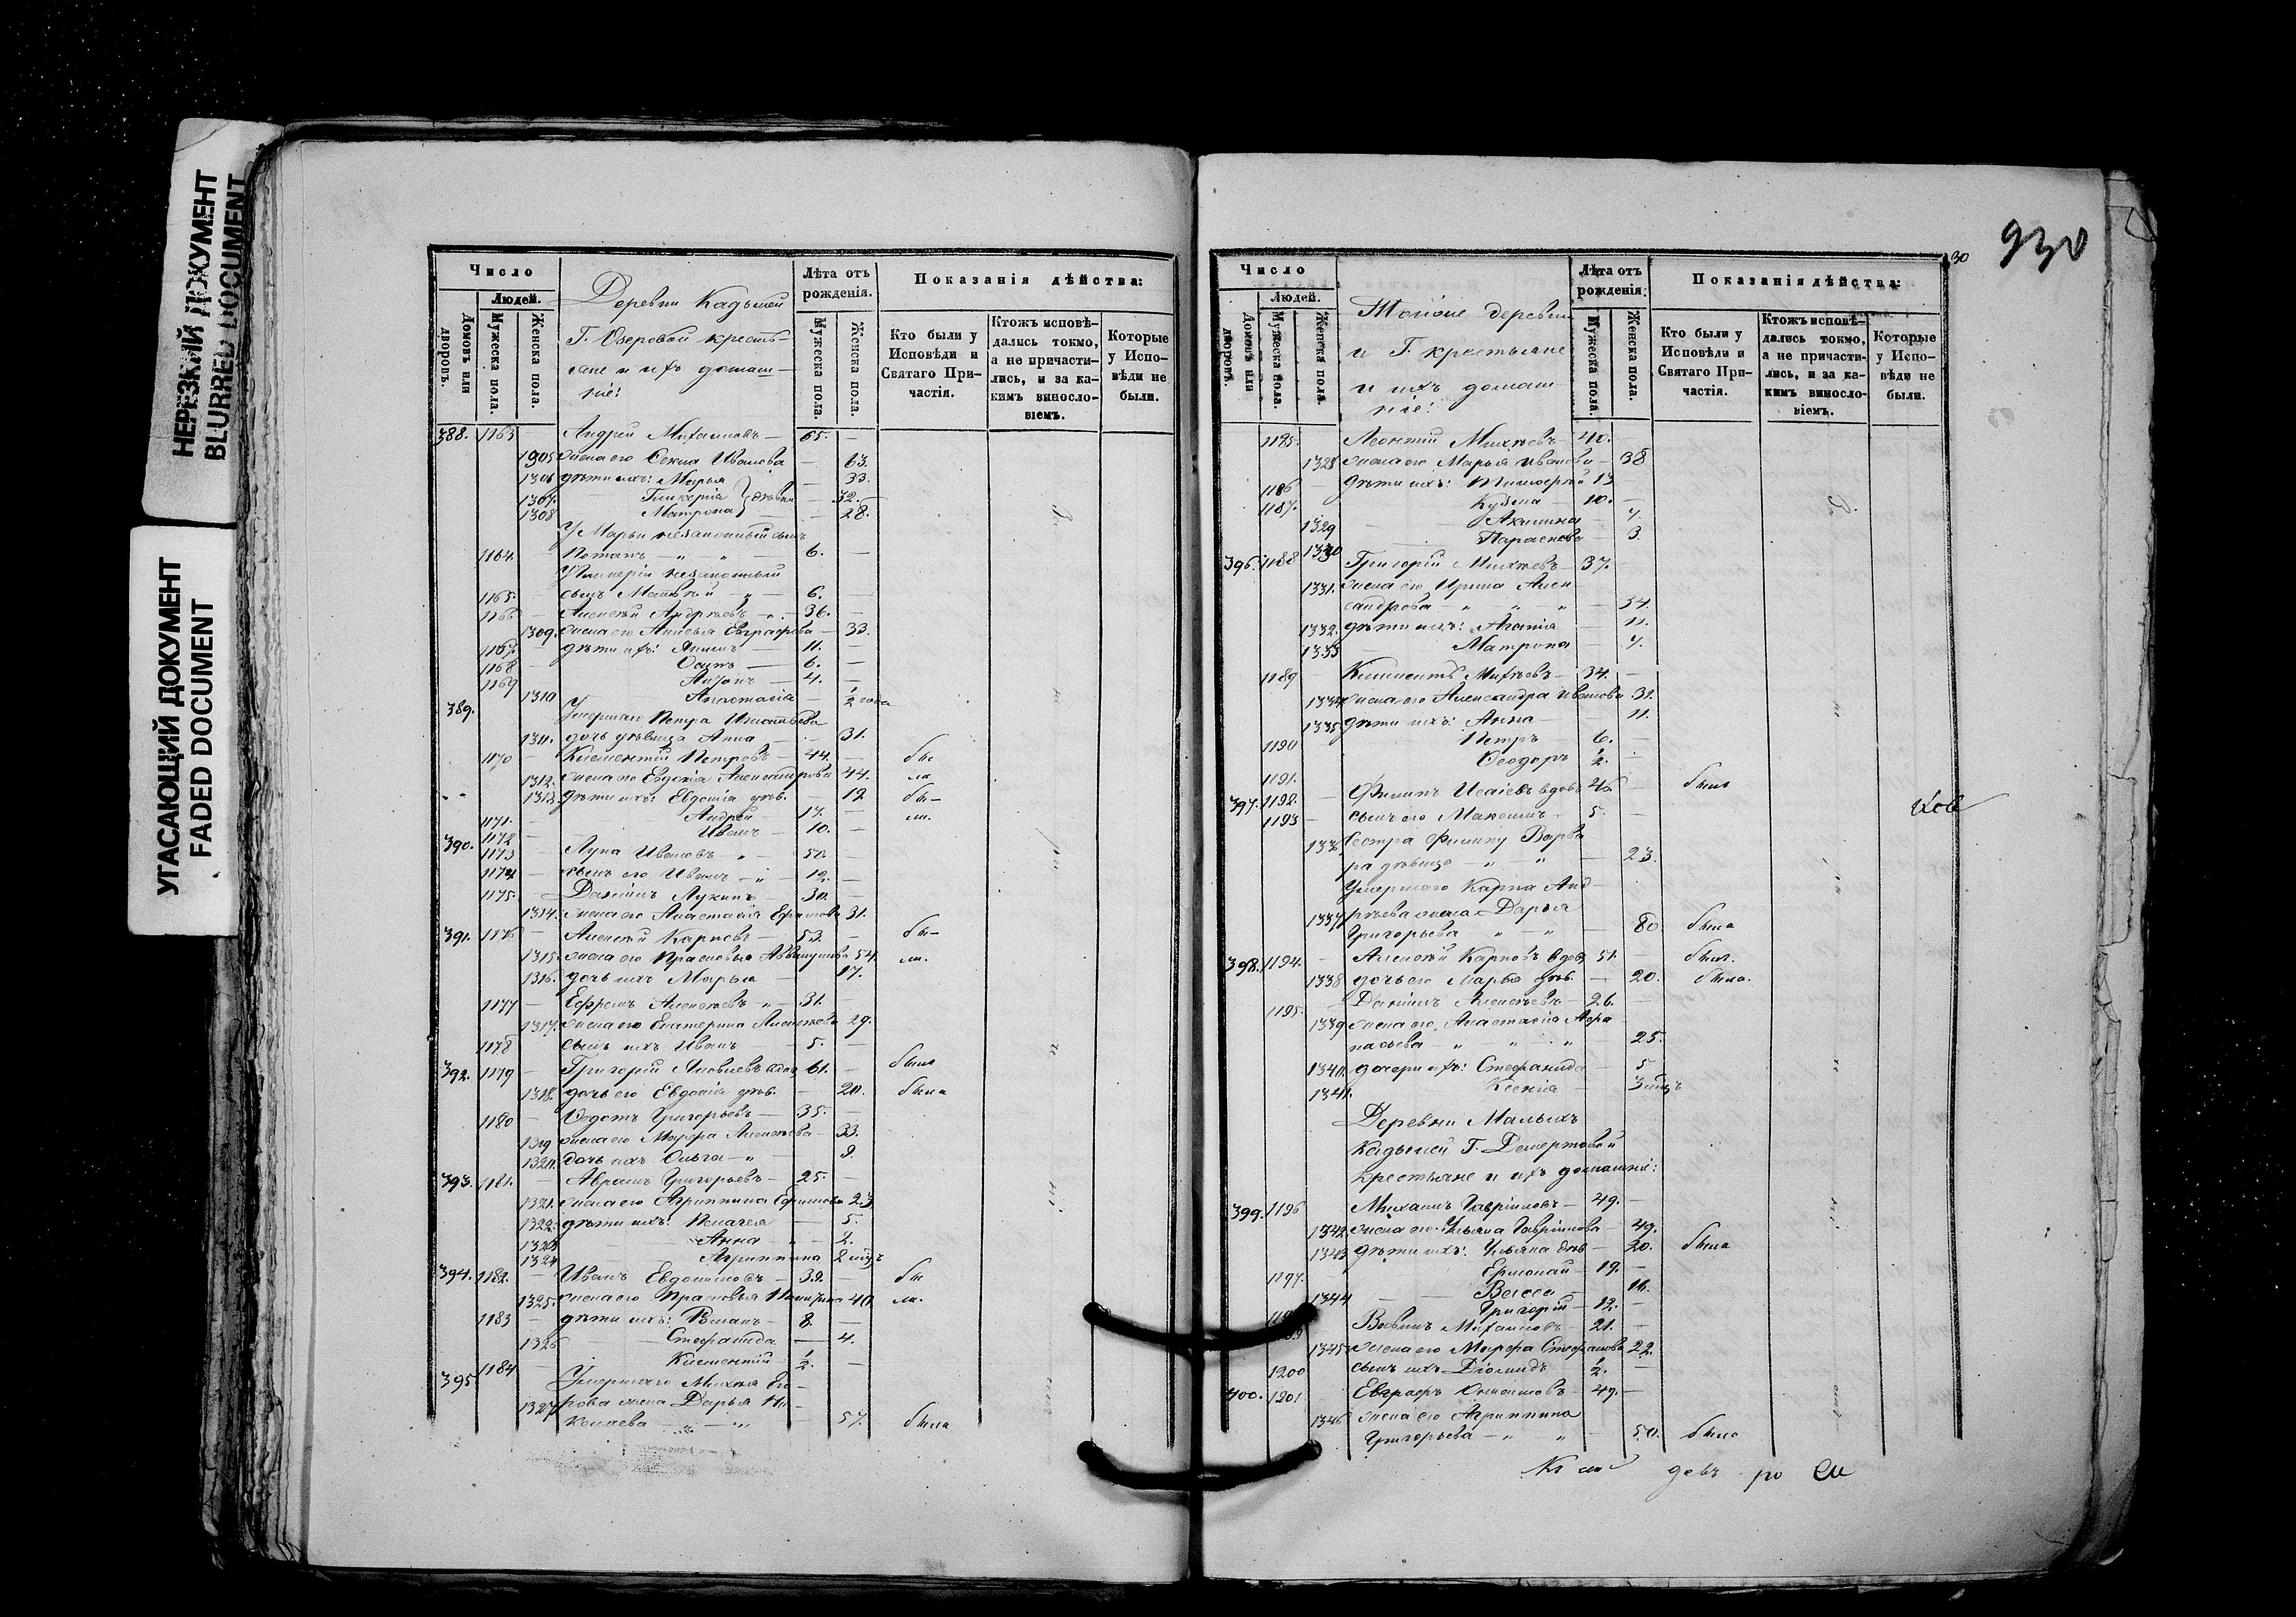 НЕРЕЗКИЙ ДОКУМЕНТ
BLURRED DOCUMENT
УГАСАЮЩИЙ ДОКУМЕНТ
FADED DOCUMENT
Число
Людей.
Домовъ или дворовъ.
Мужеска пола.
Женска пола.
Деревни Кадышей
Г. Озеровой кресть-
яне и ихъ домаш-
ніе:
Лѣта отъ рожденія.
Мужеска пола.
Женска пола.
Показанія дѣйства:
Кто были у Исповѣди и Святаго При-частія.
Ктожъ исповѣ-дались токмо, а не причасти-лись, и за ка-кимъ винослo-віемъ.
Которые у Испо-вѣди не были.
388. 1163 Андрей Михайловъ — 65. —
1305 жена его Секла Иванова — 63.
1306 дѣти ихъ: Марья 33.
1307. Гликерія } дѣвки — 32. —
1308 Матрона — 28.
У Марьи незаконный сынъ
1164. Потапъ — „ „ — 6. —
У Гликеріи незаконный
1165. сынъ Матвѣй — „ — 6. —
1166 Алексѣй Андреевъ — „ — 36. —
1309. жена его Евграфова — 33.
1167. дѣти ихъ: — 11. —
1168 Осипъ — 6. —
1169 Антонъ — 4. —
1310 Анастасія — ½ года
389. Умершаго Петра Игнатьева
1311. дочь дѣвица Анна — 31.
1170 Климентій Петровъ — 44. — бы
1312. жена его Евдокія Александрова 44. ли
1313 дѣти ихъ: Евдокія дѣв. — 19 бы—
1171. Андрей 17. — ли.
1172 Иванъ — 10. —
390. 1173 Лука Ивановъ „ — 50. —
1174 сынъ его Иванъ — „ — 12. —
1175. Даніилъ Лукинъ — 30. —
1314. жена его Анастасія Ефимова 31.
391. 1176 Алексѣй Карповъ — 53. — бы—
1315. жена его Прасковья 54. ли.
1316. дочь ихъ Марья 17.
1177 Ефремъ Алексѣевъ „ — 31. —
1317. жена его Екатерина Алексѣева 29.
1178 сынъ ихъ Иванъ — 5. —
392. 1179 Григорій Яковлевъ вдов 61. — былъ
1318. дочь его Евдокія дѣв. — 20. была
1180 Ѳедотъ Григорьевъ — 35. —
1319 жена его Марфа Алексѣева — 33.
1320. дочь ихъ Ольга — „ — 9.
393. 1181. Абрамъ Григорьевъ — 25. —
1321. жена его Агриппина Ефимова 23
1322. дѣти ихъ: Пелагея — 5.
1323 Анна — 2.
1324 Агриппина 2 мѣц.
394. 1182. Иванъ Евдокимовъ — 39. — бы
1325. жена его Прасковья Никитина 40. ли.
1183 дѣти ихъ: Романъ — 8. —
1326 Стефанида — 4.
1184 Климентій ½. —
395 Умершаго Михея Его-
1327 рова жена Дарья Ни-
колаева — „ — „ — 57. была
930
30
Число
Людей.
Домовъ или дворовъ.
Мужеска пола.
Женска пола.
Тойже деревни
и Г. крестьяне
и ихъ домаш
ніе:
Лѣта отъ рожденія.
Мужеска пола.
Женска пола.
Показанія дѣйства:
Кто были у Исповѣди и Святаго При-частія.
Ктожъ исповѣ-дались токмо, а не причасти-лись, и за ка-кимъ винослo-віемъ.
Которые у Испо-вѣди не были.
1185. Леонтій Михѣевъ — 40. —
1328 жена его Марья Иванова — 38
1186 дѣти ихъ: Тимоѳей 13
1187. Кузма — 10. —
1329 Акилина — 7.
1330 Параскева — 3.
396. 1188 Григорій Михѣевъ — 37. —
1331. жена его Ирина Алек-
сандрова — „ „ „ — 34.
1332. дѣти ихъ: Агапія — 11.
1333 Матрона — 7.
1189 Климентъ Михѣевъ — 34. —
1334 жена его Александра Иванова 31.
1335 дѣти ихъ: Анна — 11.
1190 Петръ 6. —
1191. Ѳеодоръ ½. —
397. 1192. Филипъ Исаіевъ вдов 46 — былъ
1193 сынъ его Максимъ — 5. —
1336 Сестра Филипу Варва
ра дѣвица — „ — „ — 23.
Умершаго Карпа Анд-
1337 рѣева жена Дарья
Григорьева „ — „ — 80 была
398. 1194. Алексѣй Карповъ вдов 51. — былъ.
1338 дочь его Марья дѣв. — 20. была.
1195. Даніилъ Алексѣевъ — 26. —
1339 жена его Анастасія Афа
насьева — „ „ „ — 25.
1340. дочери ихъ: Стефанида — 5
1341. Ксенія — 3 мѣц.
Деревни Малыхъ
Кадышей Г. Дехтеровой
крестьяне и ихъ домашніе:
399. 1196 Михаилъ Гавріиловъ — 49. —
1342. жена его Ульяна Гавріилова — 49.
1343 дѣти ихъ: Ульяна дѣв — 20. была
1197. Ермолай — 19. —
1344 Васса — 16.
Григорій — 12. —
Михайловъ — 21. —
1345. жена его Марфа Стефанова 22.
1200 сынъ ихъ Діомидъ ½. —
400. 1201 Евграфъ — 49. —
1346 жена его Агриппина
Григорьева — „ „ — 50. была